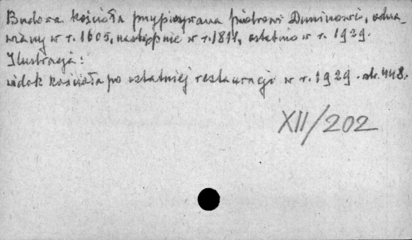 Budowa kościoła przypisywana Piotrowi Duninowi, odna-
wiany w r. 1605, następnie w r. 1811, ostatnio w r. 1929.
Ilustracja:
widok kościoła po ostatniej restauracji w r. 1929. str. 448.
XII/202